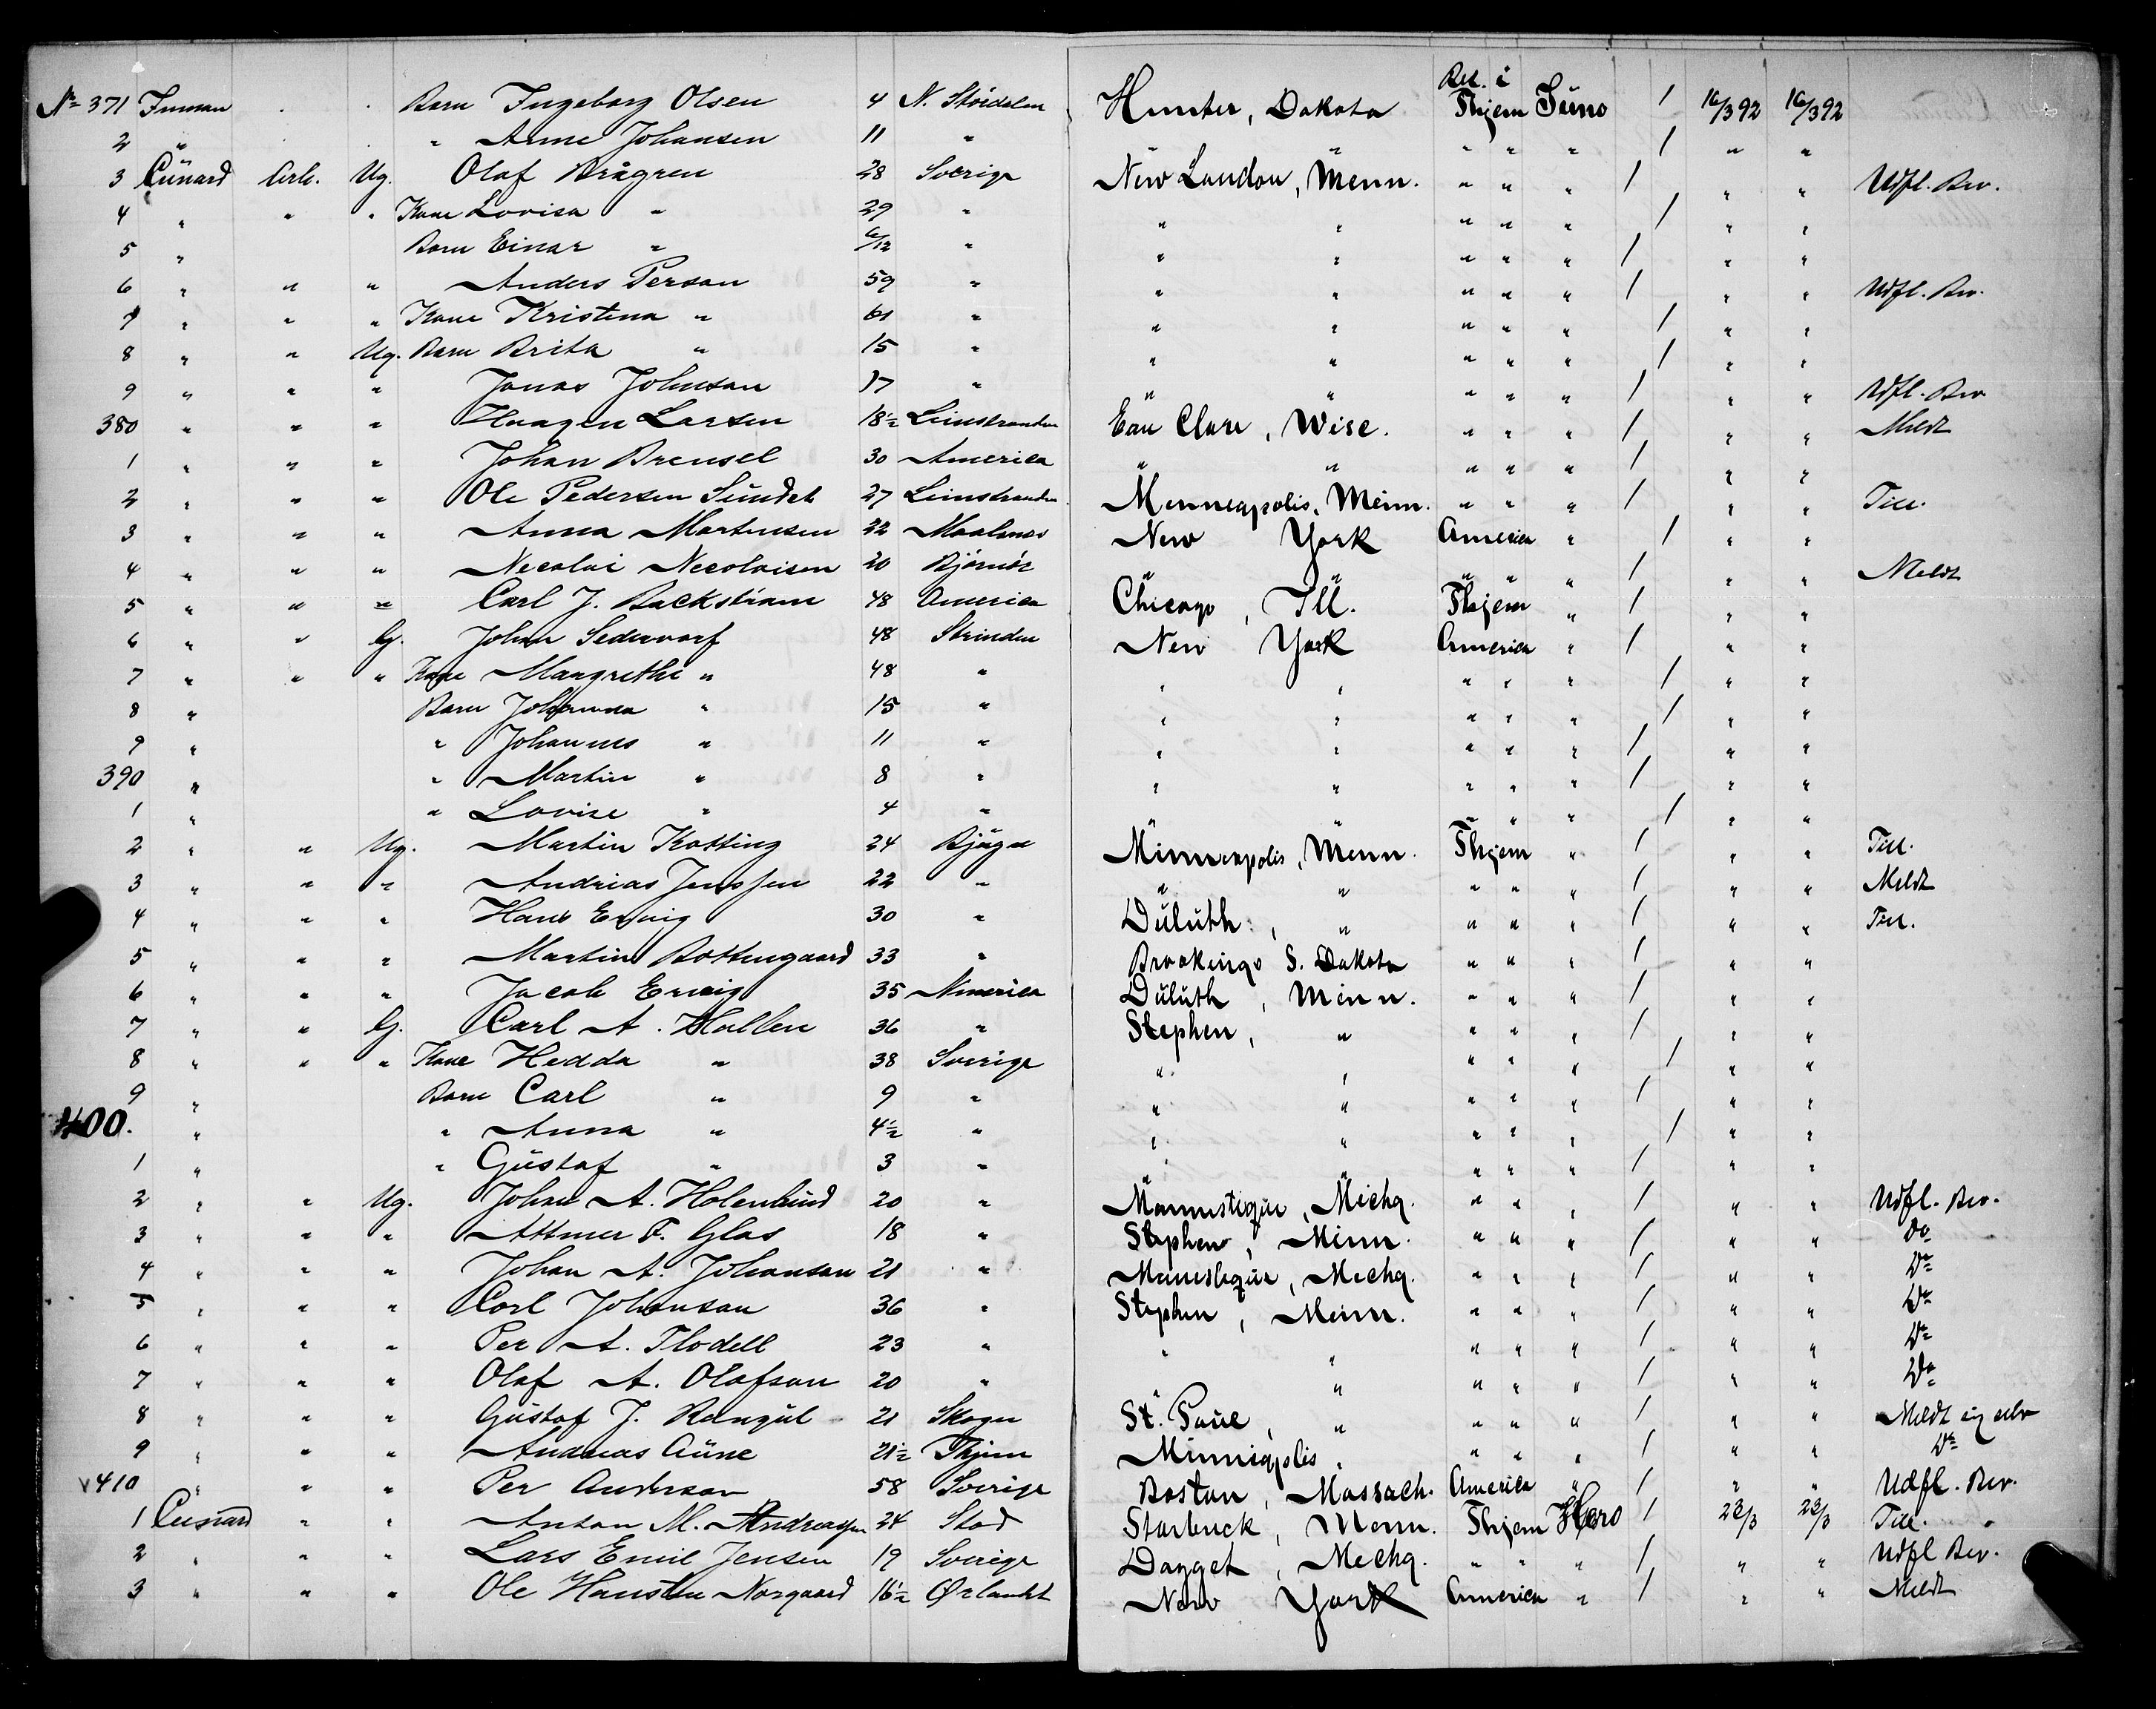 Bet. i
No 371 Inman Barn Ingeborg Olsen 4 N. Stördalen Hunter, Dakota Thjem Juno / 16/3 92 16/3 92
2 " " Arne Johansen 11 " " " " " " / " "
3 Cunard Arb. Ug. Olaf Brågren 28 Sverige New London, Minn. " " " / " " Udfl. Bev.
4 " " " Kone Lovisa " 29 " " " " " " / " "
5 " Barn Einar " 6/12 " " " " " " / " "
6 " " " Anders Person 59 " " " " " " / " " Udfl. Bev.
7 " " " Kone Kristina " 61 " " " " " " / " "
8 " " Ug. Barn Brita " 15 " " " " " " / " "
9 " " " Jonas Johnson 17 " " " " " " / " " Udfl. Bev
380 " " " Haagen Larsen 18½ Leinstranden Eau Clare, Wisc. " " " / " " Meldt
1 " " " Johan Brensel 30 America " " " " " / " "
2 " " " Ole Pedersen Sundet 27 Leinstranden Menneapolis, Meinn. " " " / " " Till.
3 " " " Anna Martinsen 22 New York America " / " "
4 " " " Necolai Necolaisen 20 Björnör " " " " " / " " Meldt
5 " " " Carl J. Backstrom 48 America Chicago, Ill. Thjem " / " "
6 " " G. Johan Sedervarf 48 Strinden New York America " / " "
7 " " " Kone Mangrethe " 48 " " " " " " / " "
8 " Barn Johanna " 15 " " " " " " / " "
9 " " Johannes " 11 " " " " " " / " "
390 " " Martin " 8 " " " " " " / " "
1 " " Lovise " 4 " " " " " " / " "
2 " " Ug. Martin Kotting 24 Bjugn Minneapolis, Menn. Thjem " / " " Till.
3 " " " Andrias Jenssen 22 " " " " " " / " " Meldt
4 " " " Hans Ervig 30 " Duluth, " " " " / " " Till.
5 " " " Martin Bottengaard 33 " Brookings S. Dakota " " " / " "
6 " " " Jacob Ervig 35 America Duluth, Minn. " " " / " "
7 " " G. Carl A. Hallen 36 " Stephen, " " " " / " "
8 " " " Kone Hedda " 38 Sverige " " " " " / " "
9 " Barn Carl " 9 " " " " " " / " "
400. " " Anna " 4½ " " " " " " / " "
1 " " Gustaf " 3 " " " " " " / " "
2 " " Ug. Johan A. Holenlund 20 " Mannestique, Michg. " " " / " " Udfl. Bev.
3 " " " Attmer F. Glas 18 " Stephen, Minn. " " " / " " Do
4 " " " Johan A. Johansan 21 " Manestique, Mechg. " " " / " " Do
5 " " " Carl Johansan 36 " Stephen, Meinn. " " " / " " Do
6 " " " Per A. Flodell 23 " " " " " " / " " Do
7 " " " Olaf A. Olafson 20 " " " " " " / " " Do
8 " " " Gustaf J. Rengul 21 Skogn St. Paul, " " " " / " " Meldt
9 " " " Andreas Aune 21½ Thjem Minniapolis, " " " / " " Do
410 " " " Per Anderson 58 Sverige Boston, Massach. America " / " " Udfl. Bev.
1 Cunard " " Anton M. Andreassen 24 Stod Starbuck, Menn. Thjem Hero / 23/3 23/3 Till.
2 " " " Lars Emil Jensen 19 Sverige Dagget, Mechg. " " " / " " Udfl Bev.
3 " " " Ole Hansten Norgaard 16½ Ørlandt New York America " / " " Meldt